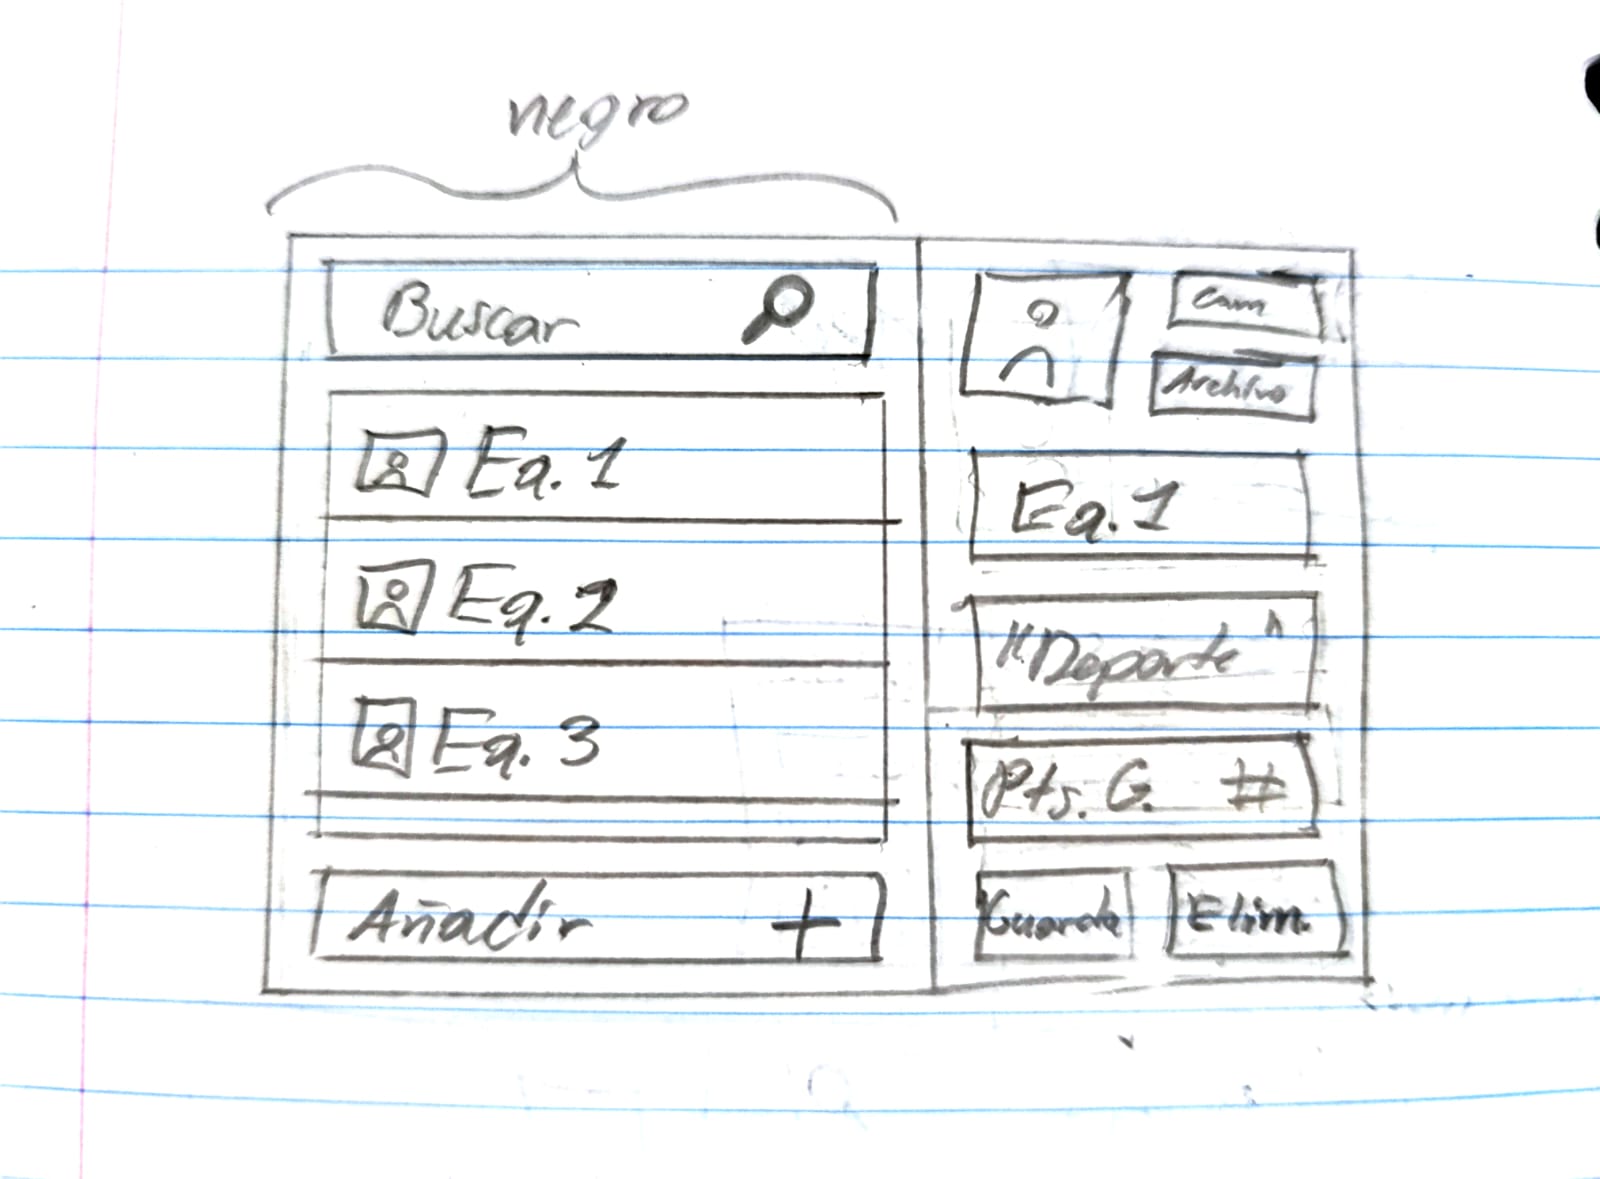 negro
Buscar
Eq. 1
Eq. 2
Eq. 3
Añadir +
Cam
Archivo
Eq. 1
"Deporte"
Pts. G. #
Guarda
Elim.